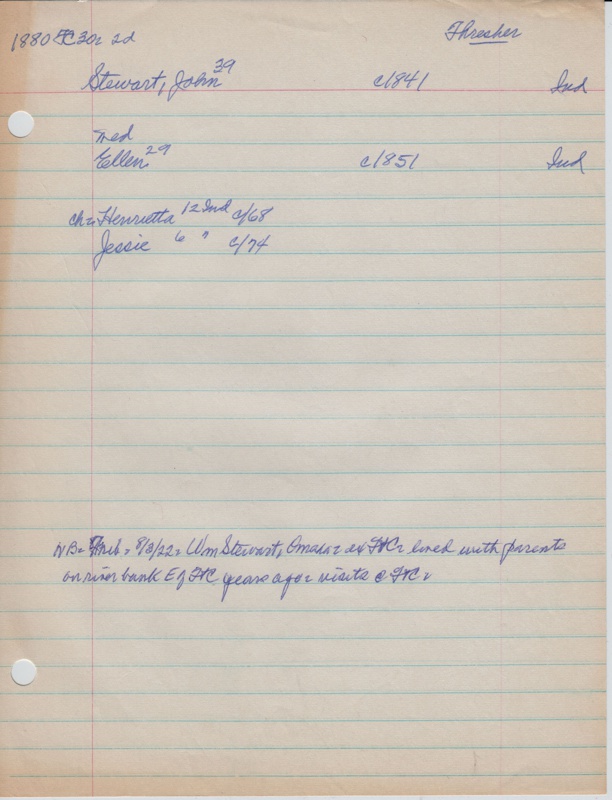 1880 FC 30r 2d Thresher
Stewart, John 39 c1841 Ind
med
Ellen 29 c1851 Ind
ch= Henrietta 12 Ind c/68
Jessie 6 " c/74
NB= 8/3/22= Wm Stewart, Omaha= ex FtC= lived with parents
on river bank E of FtC years ago= visits @ FtC=